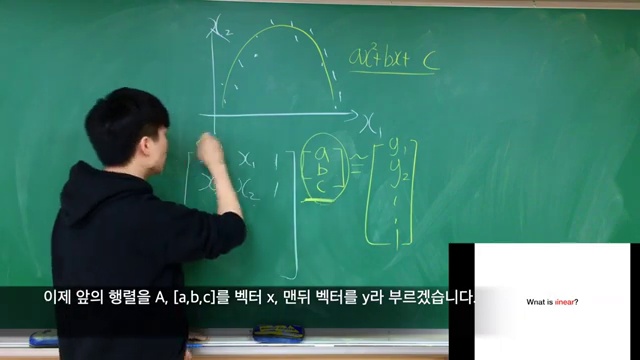 x₂
ax²+bx+ c
x₁
x₁ 1 a ≃ y₁
x₂ 1 b y₂
c
이제 앞의 행렬을 A, [a,b,c]를 벡터 x, 맨뒤 벡터를 y라 부르겠습니다.
What is linear?